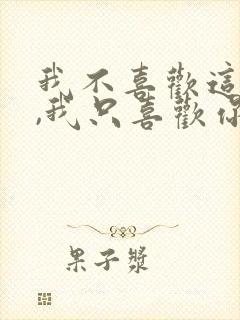 我不喜歡這
,我只喜歡你
果子漿